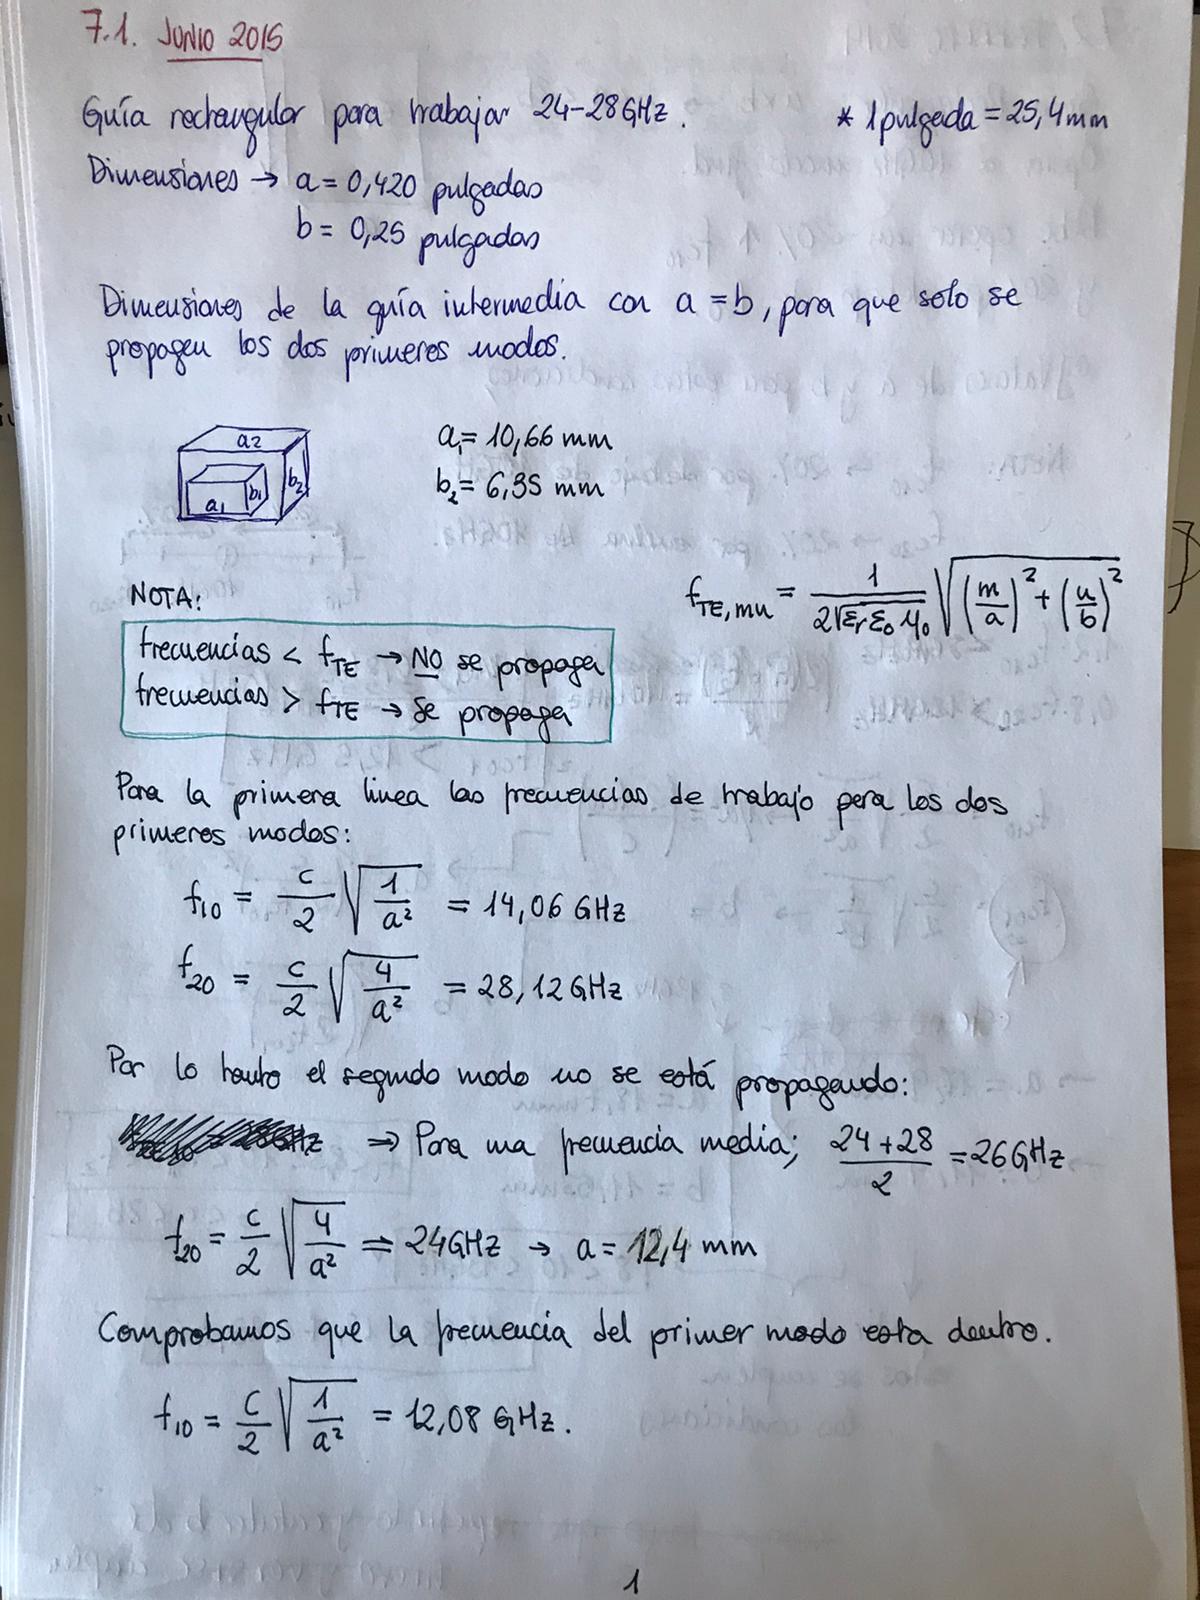 7.1. JUNIO 2015
Guía rectangular para trabajar 24-28GHz. * 1 pulgada = 25,4mm
Dimensiones → a = 0,420 pulgadas
b = 0,25 pulgadas
Dimensiones de la guía intermedia con a = b, para que solo se
propagen los dos primeros modos.
a2
a1 b1 b2
a₁= 10,66 mm
b₂= 6,35 mm
f_TE,mn = 1/(2√(εr ε0 μ0)) √((m/a)² + (n/b)²)
NOTA:
frecuencias < f_TE → NO se propaga
frecuencias > f_TE → Se propaga
Para la primera linea las frecuencias de trabajo para los dos
primeros modos:
f₁₀ = c/2 √(1/a²) = 14,06 GHz
f₂₀ = c/2 √(4/a²) = 28,12 GHz
Por lo tanto el segundo modo no se está propagando:
⇒ Para una frecuencia media; (24+28)/2 = 26GHz
f₂₀ = c/2 √(4/a²) = 24GHz → a = 12,4 mm
Comprobamos que la frecuencia del primer modo esta dentro.
f₁₀ = c/2 √(1/a²) = 12,08 GHz.
1